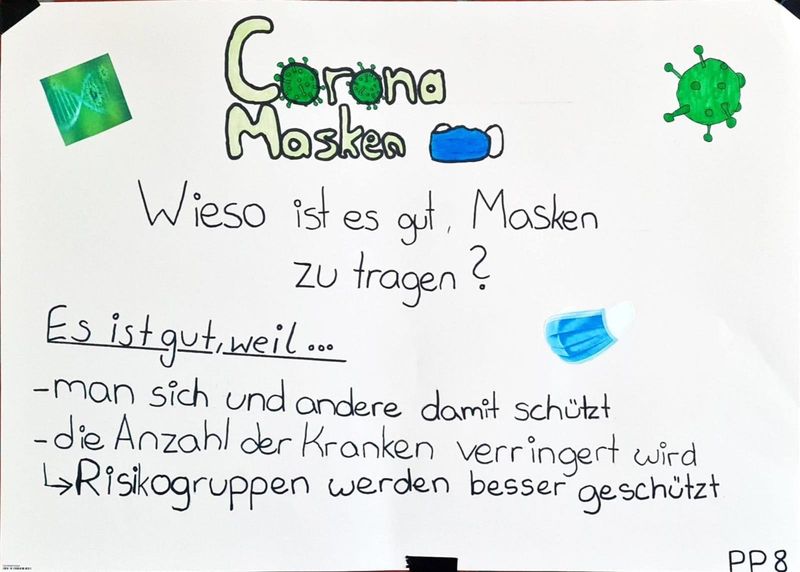 Corona
Masken
Wieso ist es gut, Masken
zu tragen?
Es ist gut, weil...
-man sich und andere damit schützt
-die Anzahl der Kranken verringert wird
↳Risikogruppen werden besser geschützt
PP8